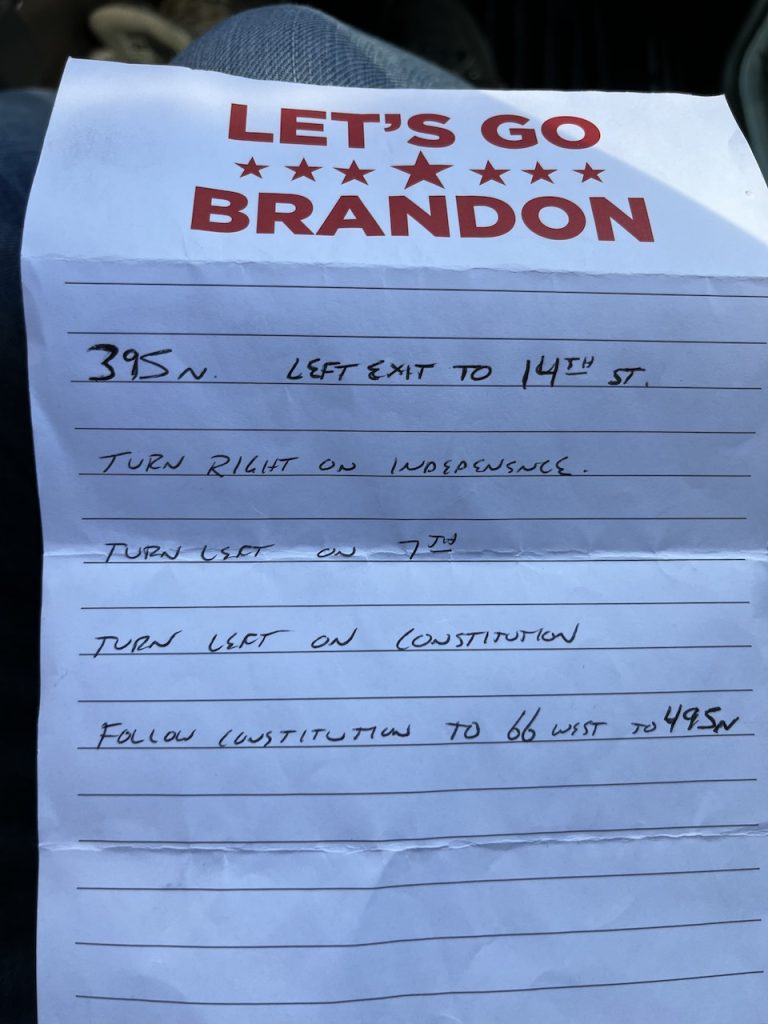 LET'S GO
BRANDON
395 N. LEFT EXIT TO 14TH ST.
TURN RIGHT ON INDEPENSENCE.
TURN LEFT ON 7TH
TURN LEFT ON CONSTITUTION
FOLLOW CONSTITUTION TO 66 WEST TO 495N